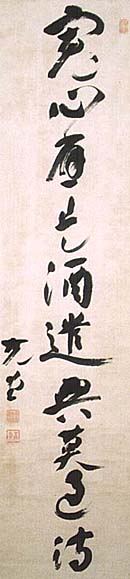 寬心應是酒遣興莫過詩